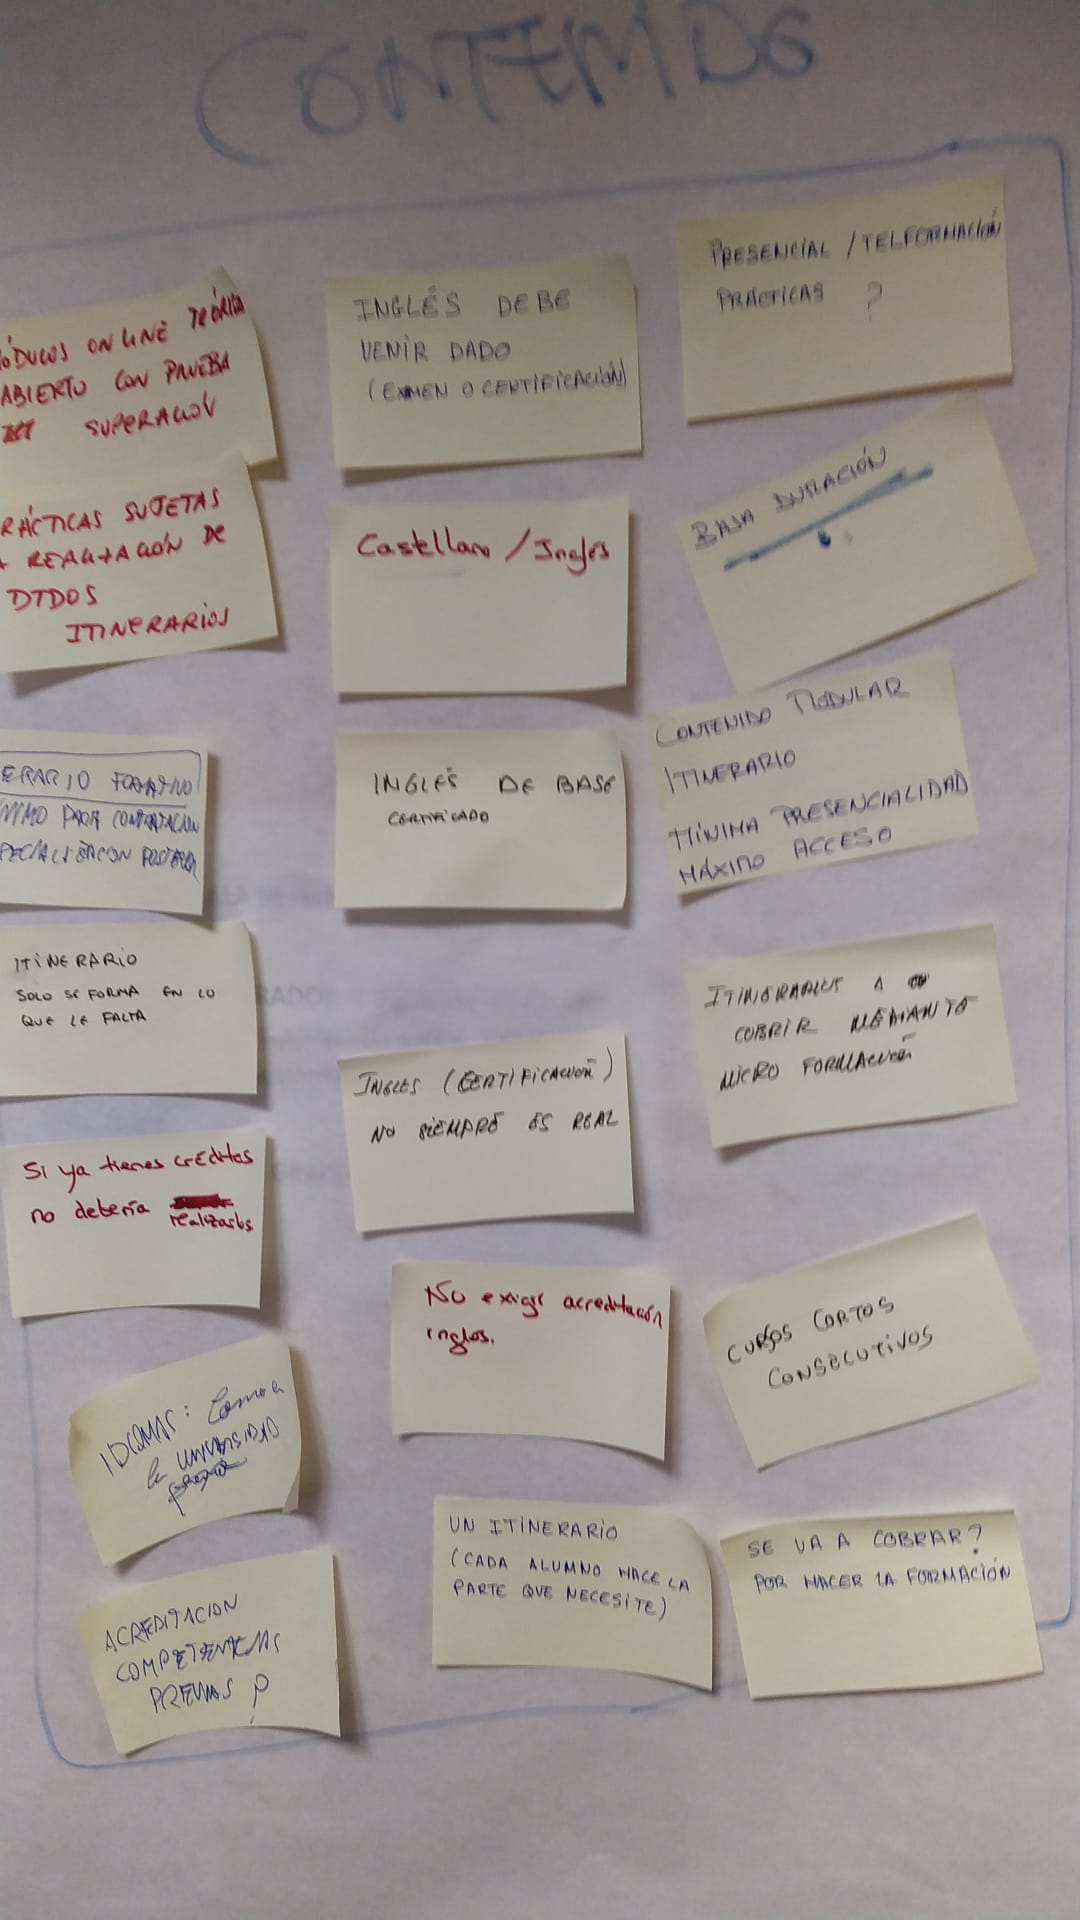 CONTENIDO
ÓDULOS ON LINE TEÓRICO
ABIERTO CON PRUEBA
SUPERACIÓN
RÁCTICAS SUJETAS
A REALIZACIÓN DE
DTDOS
ITINERARIOS
ERARIO FORMATIVO
NIMO PARA CONTRATACION
PECIALIZACION POSTERIOR
ITINERARIO
SOLO SE FORMA EN LO
QUE LE FALTA
Si ya tienes créditos
no debería
realizarlos
IDIOMAS: Como a
la UNIVERSIDAD
ACREDITACION
COMPETENCIAS
PREVIAS ?
INGLÉS DEBE
VENIR DADO
(EXMEN O CERTIFICACIÓN)
Castellano / Inglés
INGLÉS DE BASE
CERTIFICADO
INGLES (CERTIFICACION)
NO SIEMPRE ES REAL
No exigir acreditación
inglés.
UN ITINERARIO
(CADA ALUMNO HACE LA
PARTE QUE NECESITE)
PRESENCIAL / TELFORMACIÓN
PRÁCTICAS ?
BAJA DURACIÓN
CONTENIDO MODULAR
ITINERARIO
MÍNIMA PRESENCIALIDAD
MÁXIMO ACCESO
ITINERARIOS A
COBRIR MEDIANTE
MICRO FORMACION
CURSOS CORTOS
CONSECUTIVOS
SE VA A COBRAR?
POR HACER LA FORMACIÓN